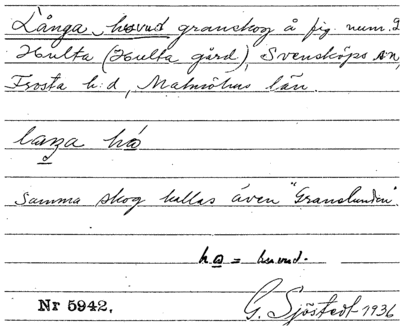 Långa huvud granskog å fig. num. 2
Hulta (Hulta gård), Svensköps sn,
Frosta h:d, Malmöhus län.
Samma skog kallas även "Granelunden".
h = huvud.
Nr 5942. G. Sjöstedt 1936